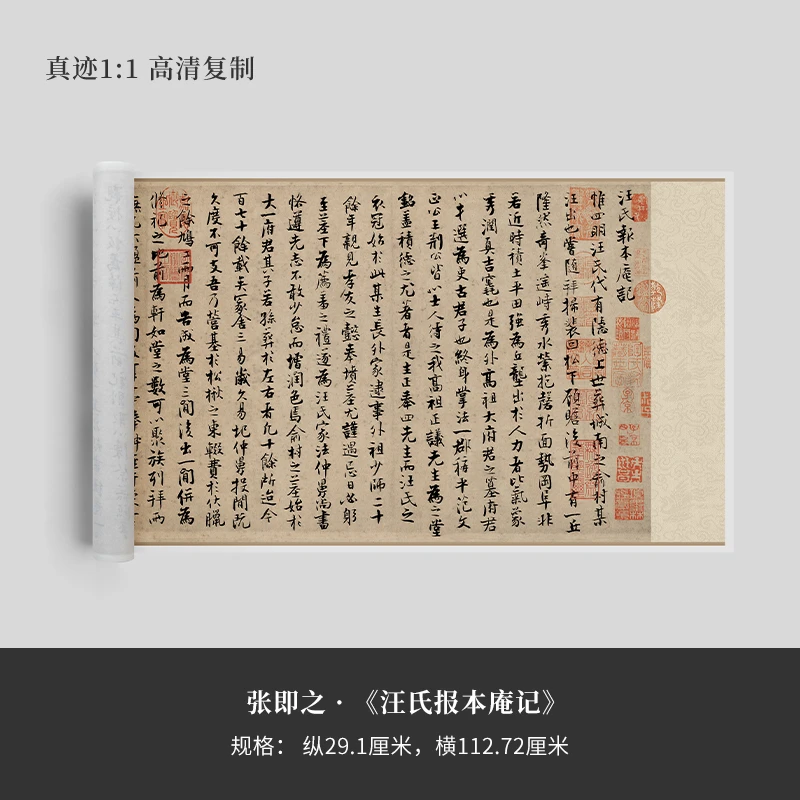 真迹1:1 高清复制
汪氏報本庵記
惟四明汪氏代有隱德上世葬城南之俞村某
汪出也嘗随拜掃裴回松下顧瞻後前中有一丘
隆然奇峯逥峙秀水縈抱磬折面勢岡阜非
若近時積土平田強為丘壟出於人力者比氣象
秀潤真吉竁也是為外髙祖大府君之墓府君
以才選為吏古君子也終身掌法一郡稱平范文
正公王荆公皆以士人待之我髙祖正議先生為之堂
銘盖積德之尤著者是生正奉四先生而汪氏之
衣冠始於此某生長外家逮事外祖少師二十
餘年親見孝友之懿奉墳塋尤謹遇忌日必躬
至墓下為薦羞之禮遂為汪氏家法仲舅尚書
恪遵先志不敢少怠而增润色焉俞村之塋始於
大一府君其子若孫葬於左右者凡十餘所迨今
百七十餘載矣冢舍三易歲久易圮仲舅投閒既
久度不可支吾乃營基於松楸之東輟費於伏臘
之餘鳩工兩月而告成為堂三間後出一間併為
脩祀之地前為軒如堂之數可以聚族列拜兩
张即之·《汪氏报本庵记》
规格： 纵29.1厘米，横112.72厘米